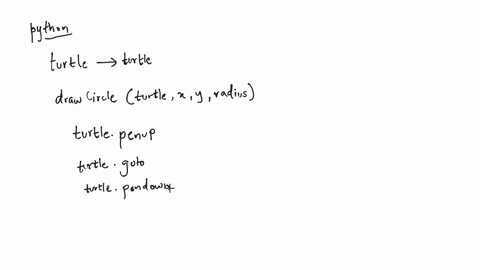 python
turtle → turtle
drawCircle (turtle, x, y, radius)
turtle. penup
turtle. goto
turtle. pendown